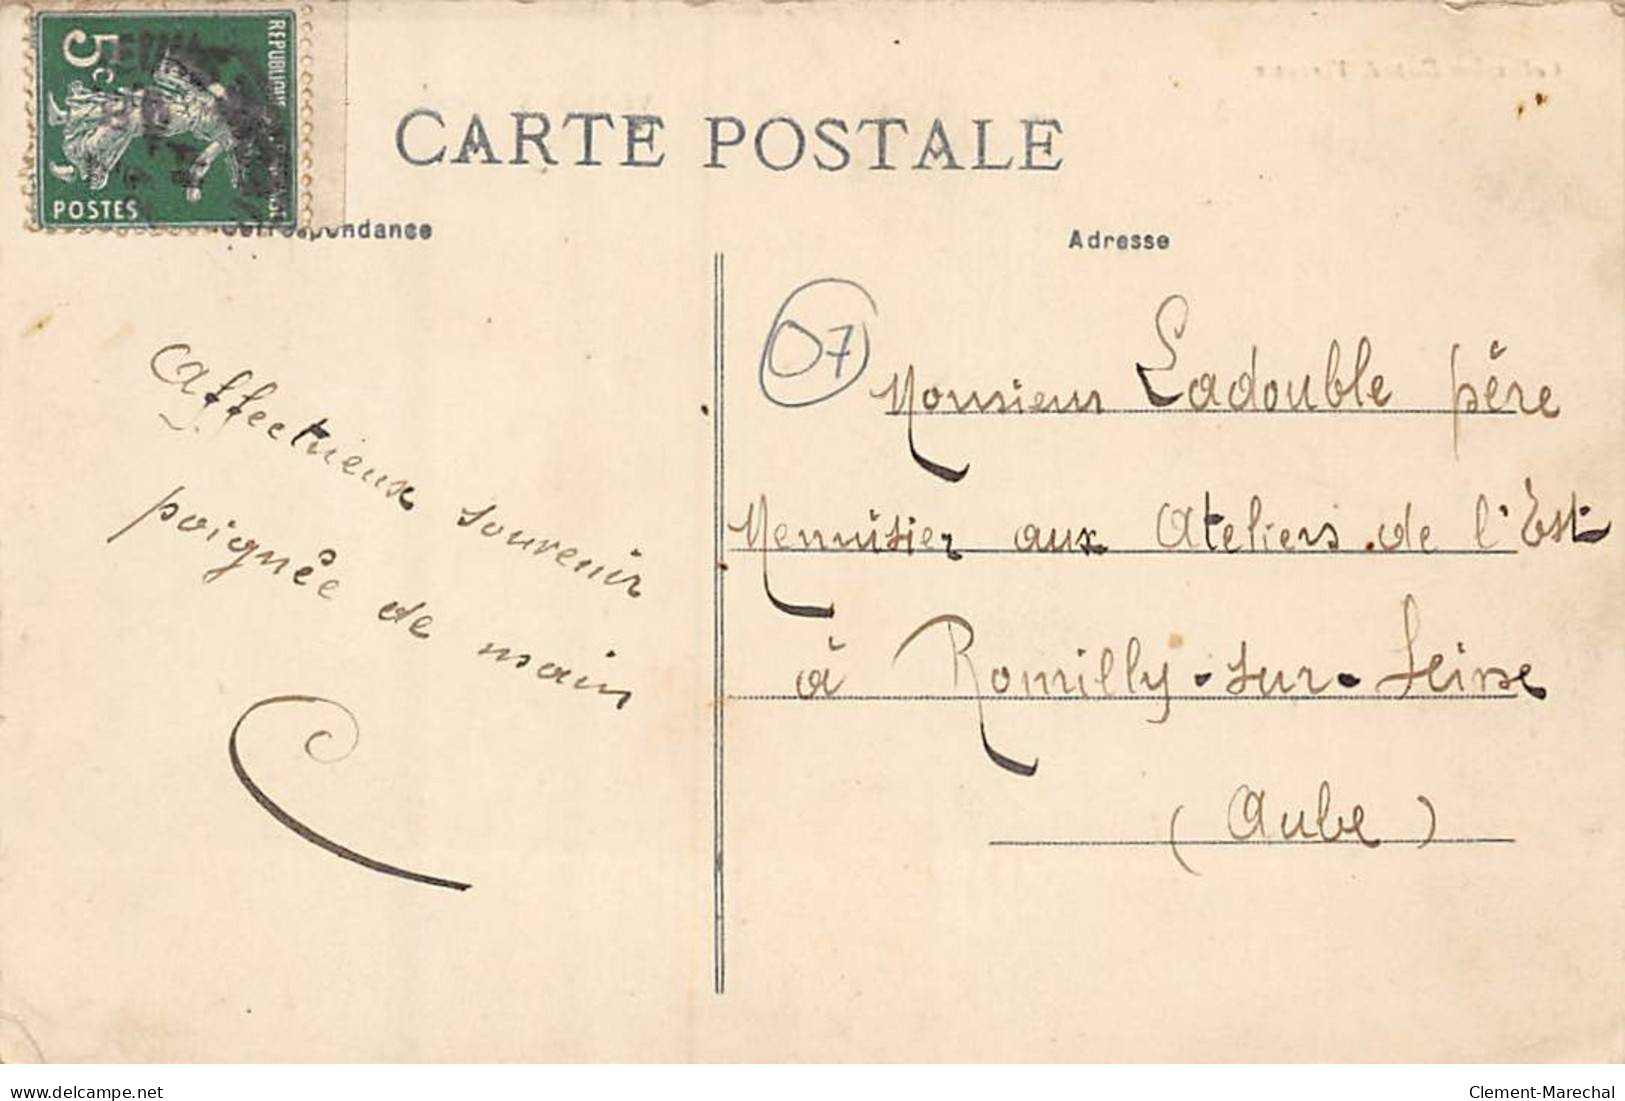 5c
REPUBLIQUE
POSTES
CARTE POSTALE
Correspondance
Adresse
07
Affectueux souvenir
poignée de main
Monsieur Ladouble père
Menuisier aux Ateliers de l'Est
à Romilly-sur-Seine
(Aube)
delcampe.net
Clement-Marechal